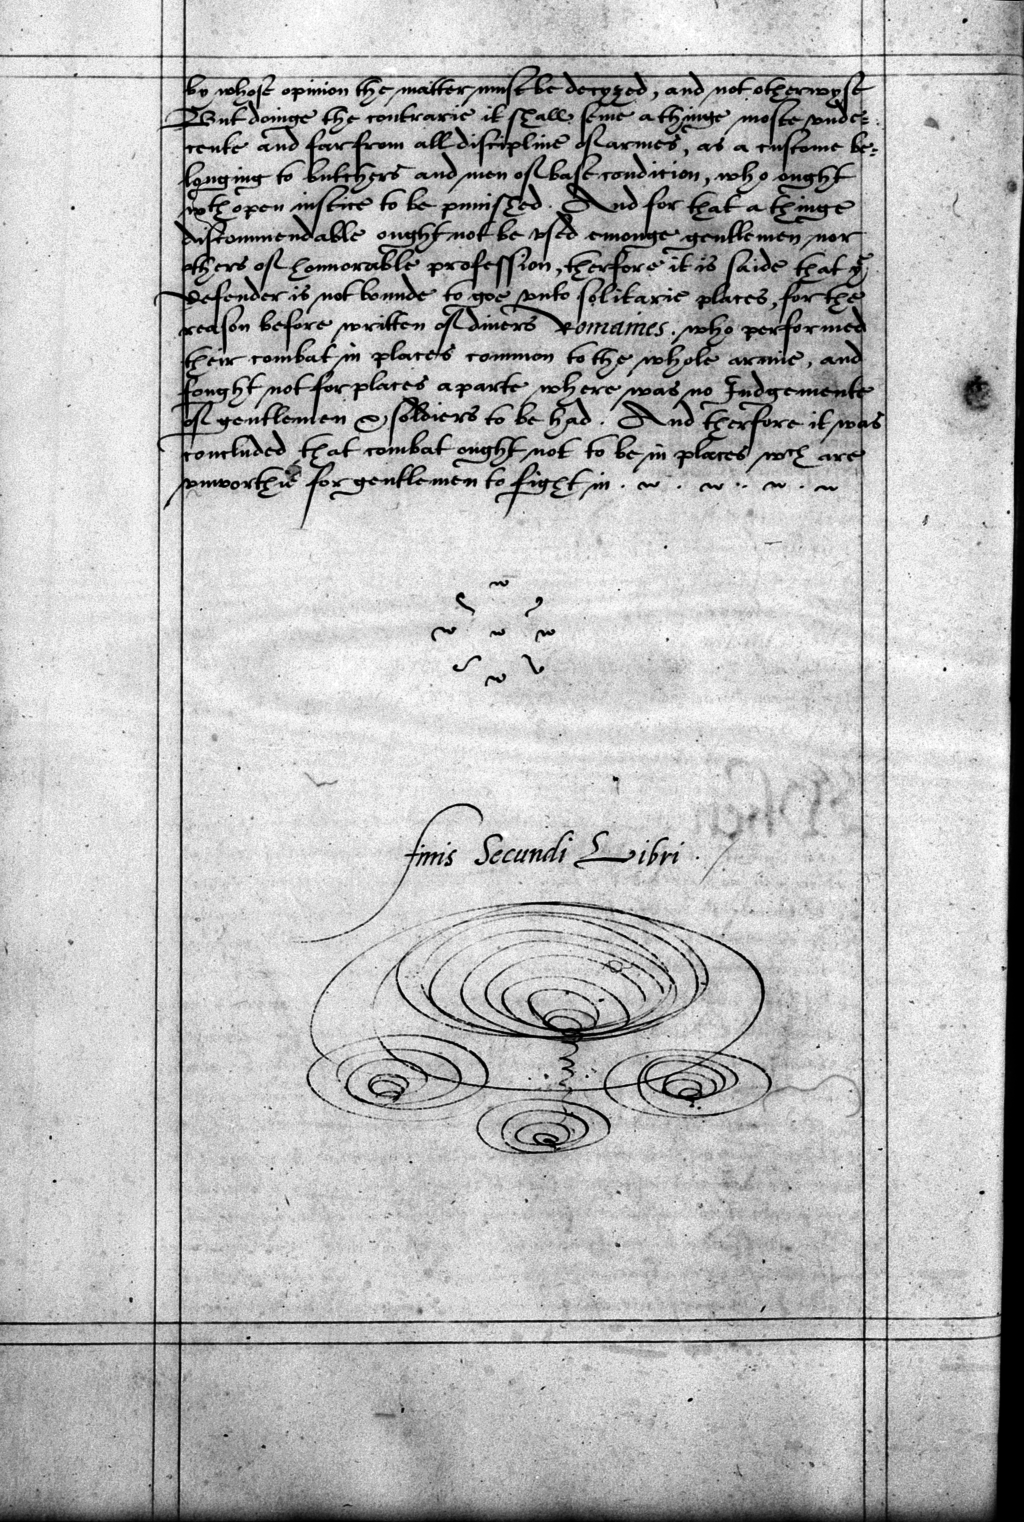 by whose opinion the matter must be decyzed, and not otherwyse
But doinge the contrarie it shall seme a thinge moste vnde=
cente and far from all discipline of armes, as a custome be=
longing to butchers and men of base condicion, who ought
wth open iustice to be punished. And for that a thinge
discommendable ought not be vsed emonge gentlemen nor
others of honnorable profession, therfore it is saide that ye
Defender is not bounde to goe vnto solitarie places, for the
reason before written of diuers Romaines, who performed
their combat in places common to the whole armie, and
fought not for places aparte where was no Iudgemente
of gentlemen & soldiers to be had. And therfore it was
concluded that combat ought not to be in places wch are
vnworthie for gentlemen to fight in.
finis Secundi Libri.